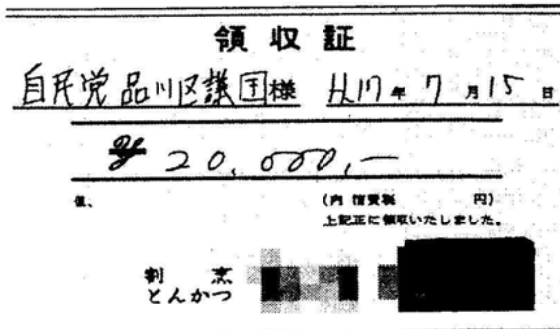 領収証
自民党品川区議団様 H17年7月15日
¥ 20,000,—
但、
(内 消費税 円)
上記正に領収いたしました。
割烹
とんかつ